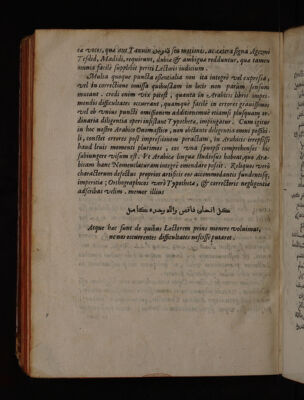 ea voces, quæ aut Tanuin تنوين seu nutationes, ac cætera signa Agezmi
Tesdid, Maddid, requirunt, dubiæ & ambiguæ redduntur, quæ tamen
omnia facilè supplebit periti Lectoris iudicium.
Multa quoque puncta essentialia non ita integrè vel expressa,
vel in correctione omissa quibusdam in locis non parùm sensum
mutant. credi enim vix potest, quanta in Arabicis libris impri-
mendis difficultates occurrant, quamque facilè in errores grauissimos
vel ob vnius puncti omissionem additionemue etiamsi plusquam or-
dinaria diligentia operi insistant Typotheta, impingatur. Cum igitur
in hoc nostro Arabico Onomastico, non obstante diligentia omni possibi-
li, constet errores post impressionem peractam, in Arabicis irrepsisse
haud leuis momenti plurimos, eos vna syntaxi comprehensos hic
subiungere visum est. Vt Arabicæ linguæ studiosus habeat, quo Ara-
bicam hanc Nomenclaturam integrè emendare possit. Reliquos verò
characterum defectus proprios artificis eos accommodantis fundentisq;
imperitiæ; Orthographicos verò Typothetæ, & correctoris negligentia
adscribas velim. memor illius
كل انسان ناقص والله وحده كامل
Atque hæc sunt de quibus Lectorem prius monere voluimus,
ne nos occurrentes difficultates nescisse putaret.